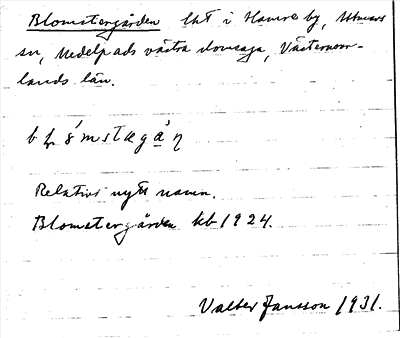 Blomstergården lht i Hamre by, Attmars
sn, Medelpads västra domsaga, Västernorr-
lands län.
Relativt nytt namn.
Blomstergården kb 1924.
Valter Jansson 1931.